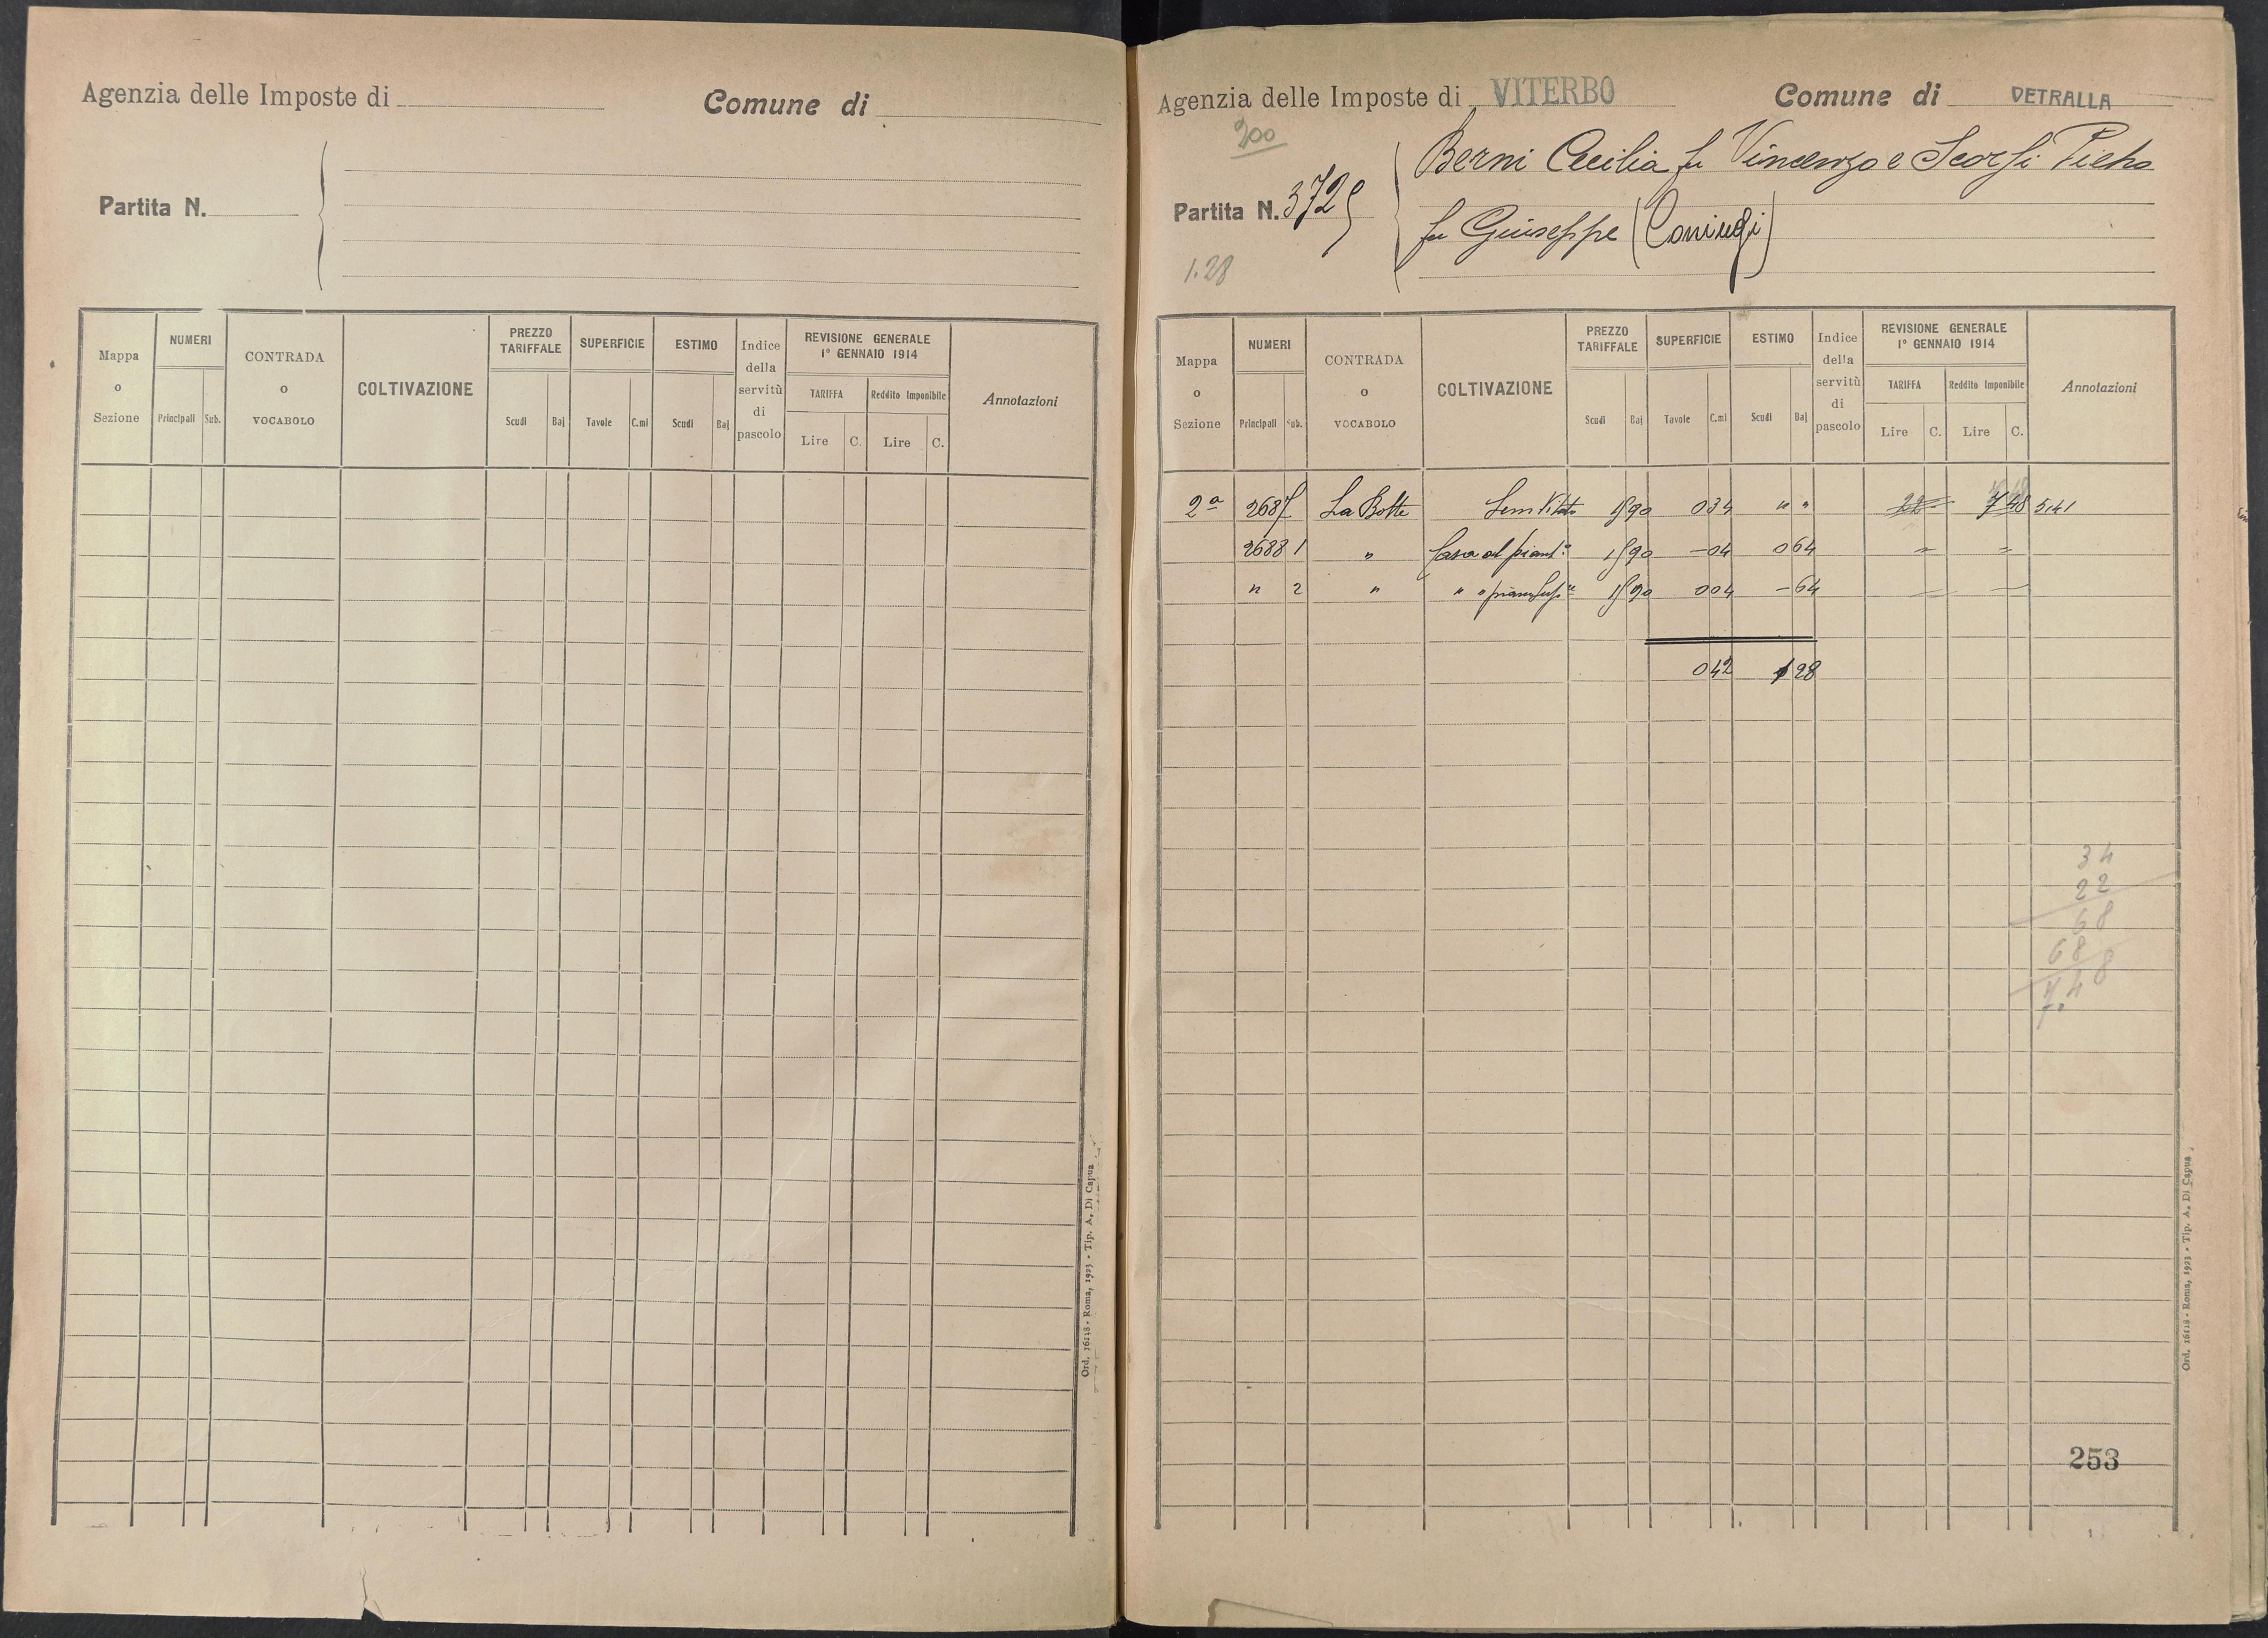 Agenzia delle Imposte di
Comune di
Partita N.
Mappa o Sezione
NUMERI
Principali Sub.
CONTRADA o VOCABOLO
COLTIVAZIONE
PREZZO TARIFFALE
Scudi Baj
SUPERFICIE
Tavole C.mi
ESTIMO
Scudi Baj
Indice della servitù di pascolo
REVISIONE GENERALE
1° GENNAIO 1914
TARIFFA Reddito Imponibile
Lire C. Lire C.
Annotazioni
Ord. 16118 - Roma, 1923 - Tip. A. Di Capua
Agenzia delle Imposte di VITERBO
Comune di VETRALLA
200
Partita N. 3725
Berni Cecilia fu Vincenzo e Scorsi Pietro
fu Giuseppe (Coniugi)
1.28
Mappa o Sezione
NUMERI
Principali Sub.
CONTRADA o VOCABOLO
COLTIVAZIONE
PREZZO TARIFFALE
Scudi Baj
SUPERFICIE
Tavole C.mi
ESTIMO
Scudi Baj
Indice della servitù di pascolo
REVISIONE GENERALE
1° GENNAIO 1914
TARIFFA Reddito Imponibile
Lire C. Lire C.
Annotazioni
2a 2687 La Botte Sem Vitato 15 90 0 34 " " 22 7 48 5,41
2688 1 " Casa al 15 90 - 04 0 64
" 2 " " " 15 90 0 04 - 64
0 42 1 28
34
22
68
68
748
253
Ord. 16118 - Roma, 1923 - Tip. A. Di Capua